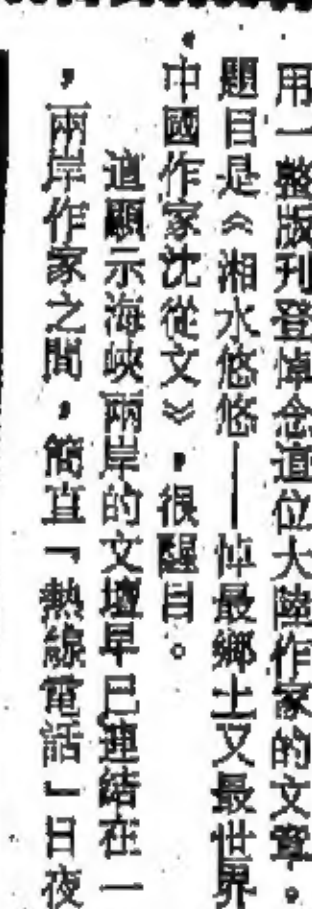 用一整版刊登悼念這位大陸作家的文章。
題目是《湘水悠悠——悼最鄉土又最世界
中國作家沈從文》，很醒目。
這顯示海峽兩岸的文壇早已連結在一
，兩岸作家之間，簡直「熱線電話」日夜